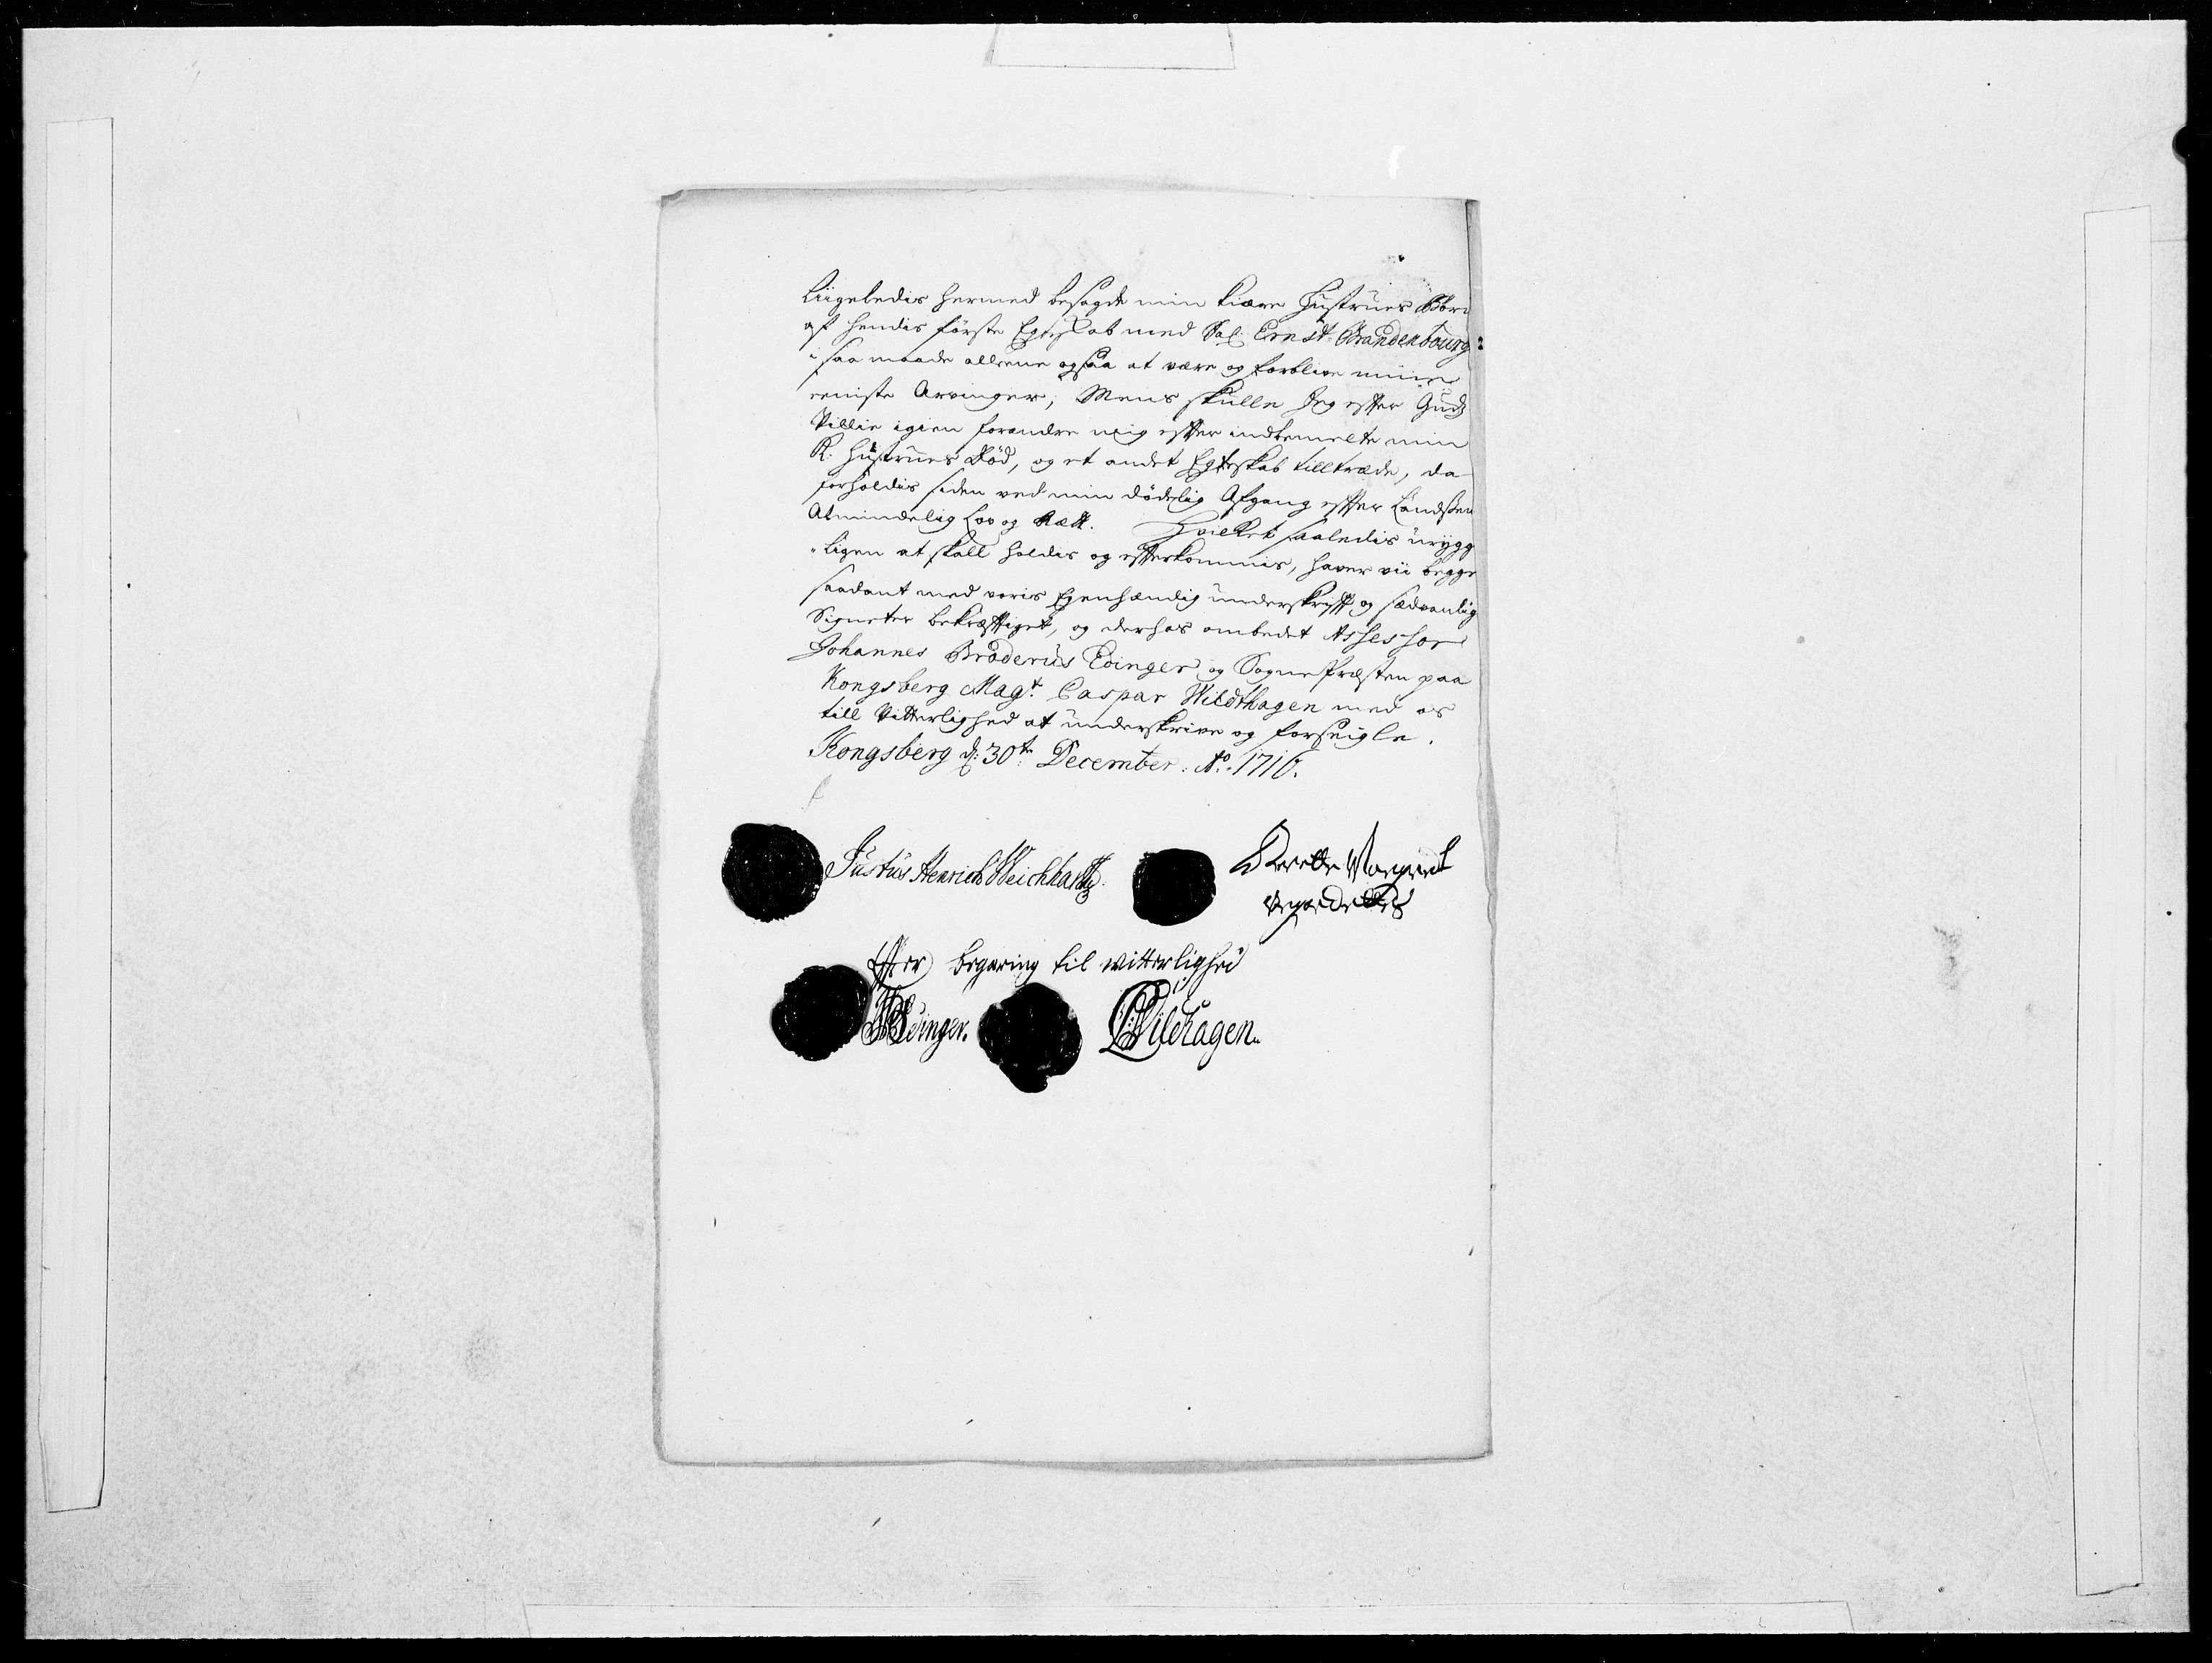 Liigeledis hermed besagde min kiære Hustrues Börn
af hendis förste Egteskab med Sal: Ernst Brandenbourg:
i saa maade alleene ogsaa at være og forblive miine
eeniste Arvinger; Mens skulle Jeg efter Guds
Villie igien forandre mig efter indbemelte min
K: Hustrues Död, og et andet Egteskab tilltræde, da
forholdis siden ved min dödelig Afgang effter Landsens
Almindelig Lov og Rætt. Hvilket saaledis urygg
"ligen at skall holdis og efterkommis, haver vii begge
saadant med voris Egenhændig underskrifft og sædvanlig
Signeter bekræfftiget, og derhos ombedet Assessor
Johannes Broderus Edinger og Sogne Præsten paa
Kongsberg Mag.t Caspar Wildthagen med os
till Vitterlighed at underskrive og forseigle.
Kongsberg d: 30te December: Ao. 1716.
Justus Henrich Weichhardt. Margret
Efter begæring til witterlighed
Edinger. CWildhagen.